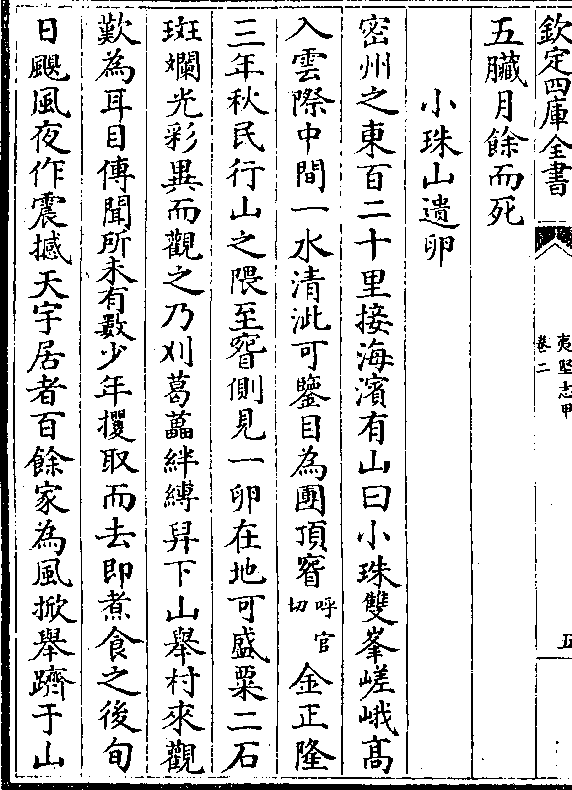 欽定四庫全書
夷堅志甲
卷二
五
五臟月餘而死
小珠山遺卵
密州之東百二十里接海濱有山曰小珠雙峯嵯峨髙
入雲際中間一水清泚可鑒目為團頂窅呼官切金正隆
三年秋民行山之隈至窅側見一卵在地可盛粟二石
斑斕光彩異而觀之乃刈葛藟絆縛舁下山舉村來觀
歎為耳目傳聞所未有數少年攫取而去即煮食之後旬
日颶風夜作震撼天宇居者百餘家為風掀舉躋于山